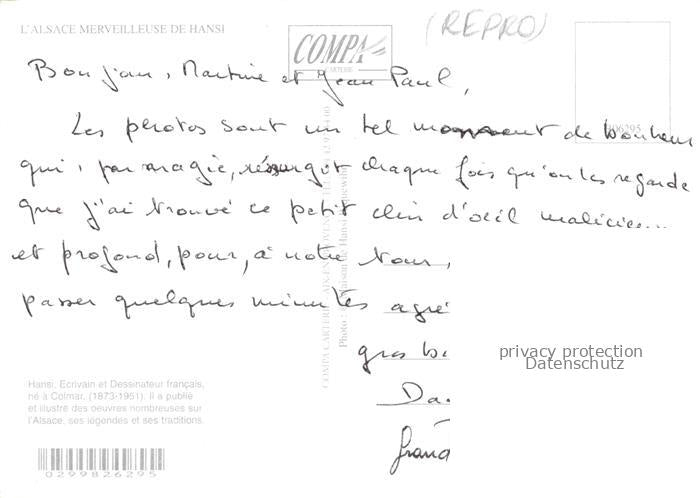 L'ALSACE MERVEILLEUSE DE HANSI
(REPRO)
COMPA
CARTERIE
Bonjour, Martine et Jean Paul,
Les photos sont un tel moment de bonheur
qui, par magie, résurgit chaque fois qu'on les regarde
que j'ai trouvé ce petit clin d'oeil malicieu...
et profond, pour, à notre tour,
passer quelques minutes agré
gros b
Da
Grand
privacy protection
Datenschutz
COMPA CARTERIE
Photo : Maison de Hansi
Hansi, Ecrivain et Dessinateur français,
né à Colmar, (1873-1951). Il a publié
et illustré des oeuvres nombreuses sur
l'Alsace, ses légendes et ses traditions.
0299826295